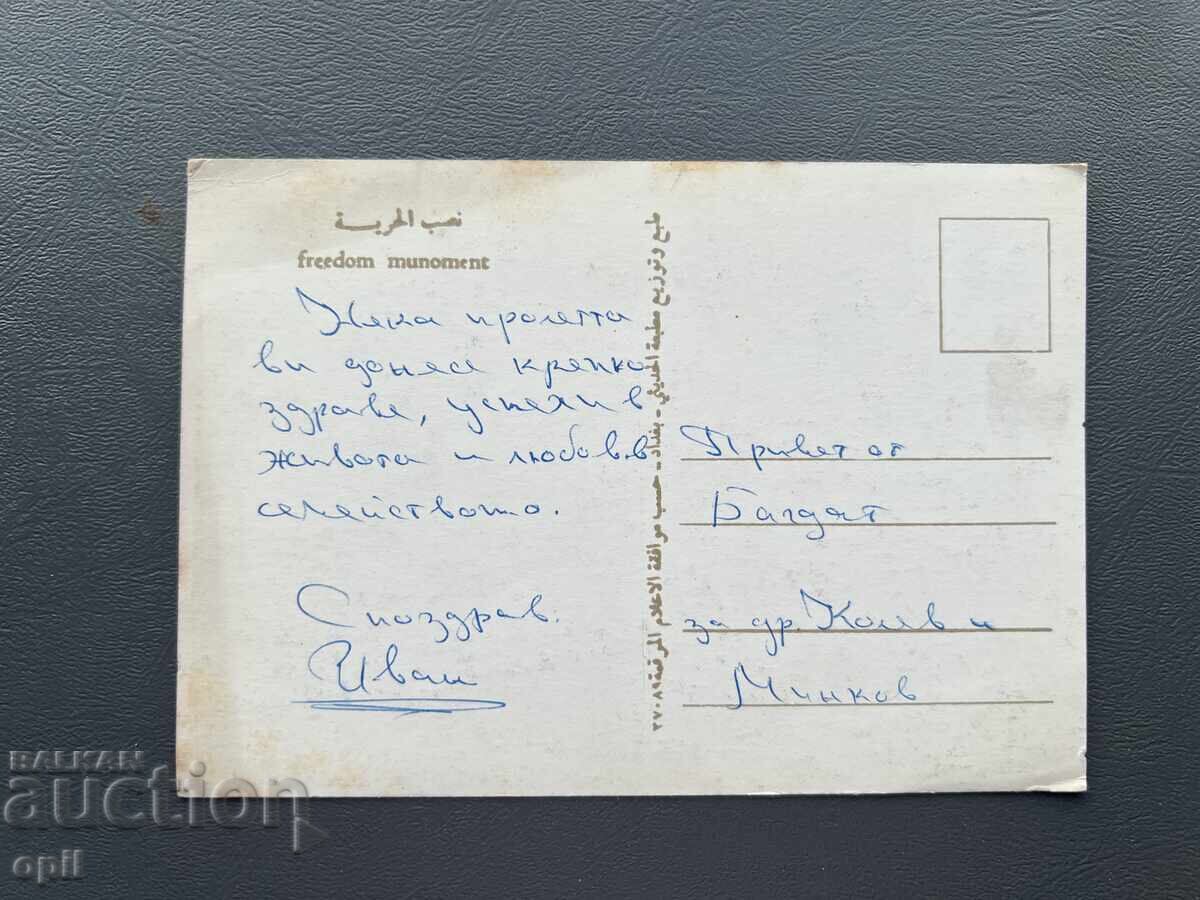 نصب الحرية
freedom munoment
Нека пролетта
ви донесе крепко
здраве, успехи в
живота и любов в
семейството.
С поздрав.
Иван
طبع وتوزيع مطبعة الحديثي - بغداد - حسب موافقة الاعلام المرقمة ٢٧٠٨٩
Привет от
Багдат
за др. Колев и
Минков
BALKAN
auction
opil